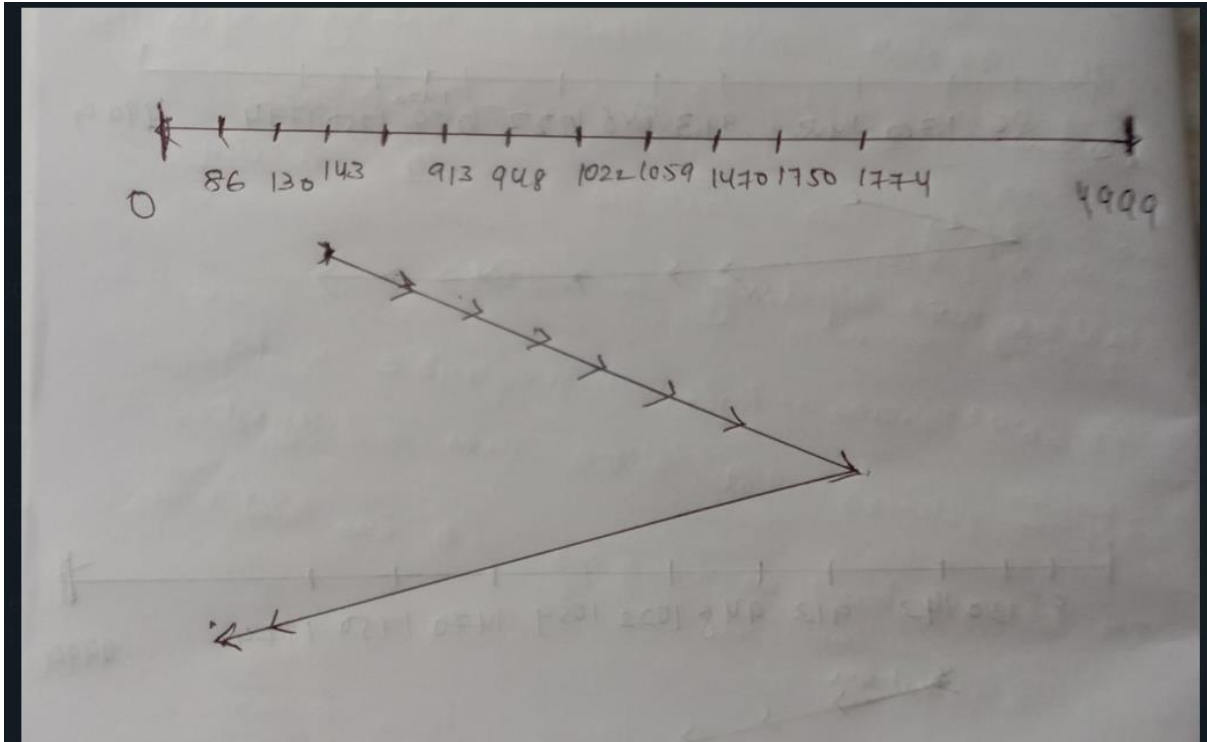 86 130 143 913 948 1022 1059 1470 1750 1774
0 4999